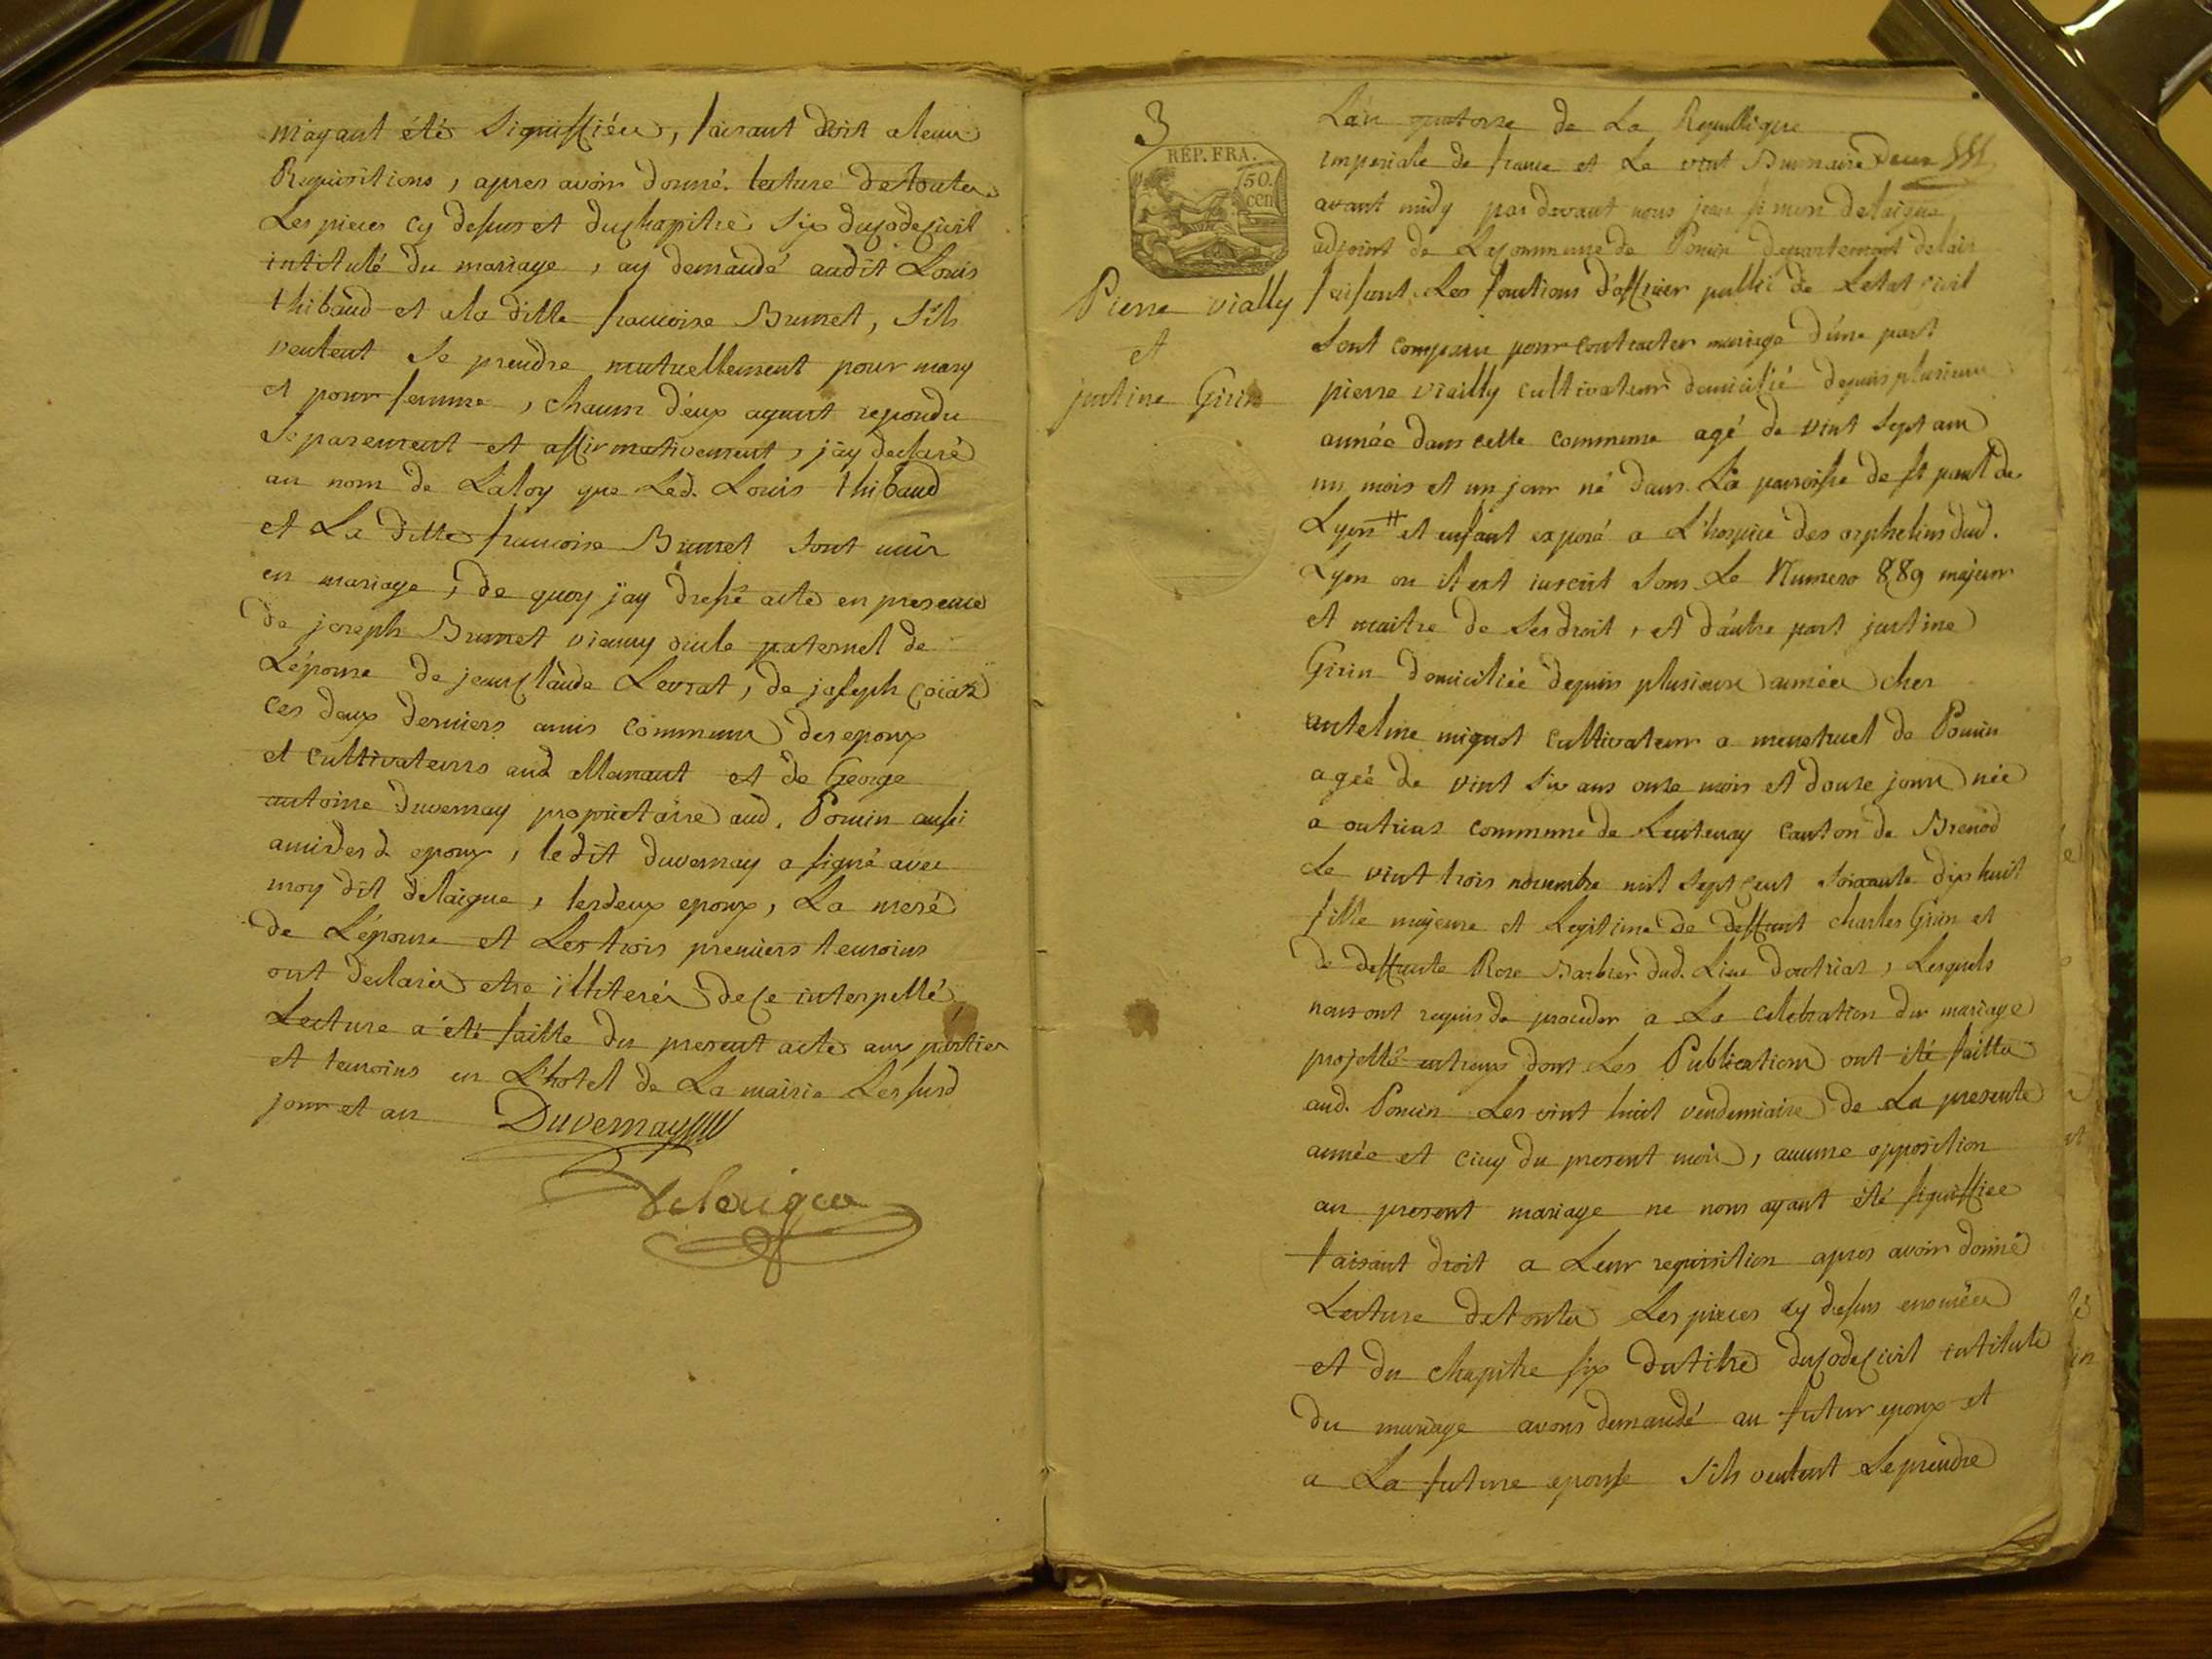 m'ayant étés signiffiéés, faisant droit a leurs
Requisitions, apres avoir donné lecture de toutes
Les pieces cy dessus et du chapitre six du code civil
intitulé du mariage, ay demandé audit Louis
thibaud et a la ditte francoise Brunet, s'ils
veulent se prendre mutuellement pour mary
et pour femme, chacun d'eux ayant repondu
separement et affirmativement, j'ay declaré
au nom de La loy que Led. Louis thibaud
et La ditte francoise Brunet sont unis
en mariage, de quoy j'ay dressé acte en presence
de joseph Brunet oncle paternel de
L'épouse de jean claude Levrat, de joseph
ces deux derniers amis communs des epoux
et cultivateurs aud allemant et de George
antoine Duvernay proprietaire aud. Poncin aussi
ami des d. epoux, le dit duvernay a signé avec
moy dit delaigue, les deux epoux, La meré
de L'épouse et Les trois premiers temoins
ont declarés etre illiterés de ce interpellé
Lecture a été faitte du present acte aux parties
et temoins en L'hotel de La mairie Les susd
jour et an Duvernay
Delaigue
3
RÉP. FRA.
50.
cen
Pierre vially
et
justine Girin
L'an quatorze de La Republique
imperiale de france et Le vint Brumaire deux
avant midy par devant nous jean simon delaigue
adjoint de La commune de Poncin departement de lain
faisant Les fonctions d'officier public de Letat civil
sont comparu pour contracter mariage d'une part
pierre viailly cultivateur domicilié depuis plusieurs
année dans cette commune agé de vint sept ans
un mois et un jour né dans La paroisse de st paul de
Lyon # et enfant exposé a L'hospice des orphelins dud.
Lyon ou il est inscrit sous Le Numero 889 majeur
et maitre de ses droit, et d'autre part justine
Girin domiciliée depuis plusieurs années chés
antelme mignot cultivateur a menetruel de Poncin
agéé de vint six ans onze mois et douze jours née
a outriaz commune de Lantenay canton de Brenod
Le vint trois novembre mil sept cent soixante dix huit
fille majeure et Legitime de deffunt charles Girin et
de deffunte Rose Barbier dud. Lieu d'outriaz, Lesquels
nous ont requis de proceder a La celebration du mariage
projetté entreux dont Les Publications ont été faittes
aud. Poncin Les vint huit vendemiaire de La presente
année et cinq du present mois, aucune opposition
au present mariage ne nous ayant été signiffiee
faisant droit a Leur requisition apres avoir donné
Lecture de toutes Les pieces cy dessus enoncées
et du chapitre six du titre du code civil intitulé
du mariage avons demandé au futur epoux et
a La future epouse s'ils veulent se prendre